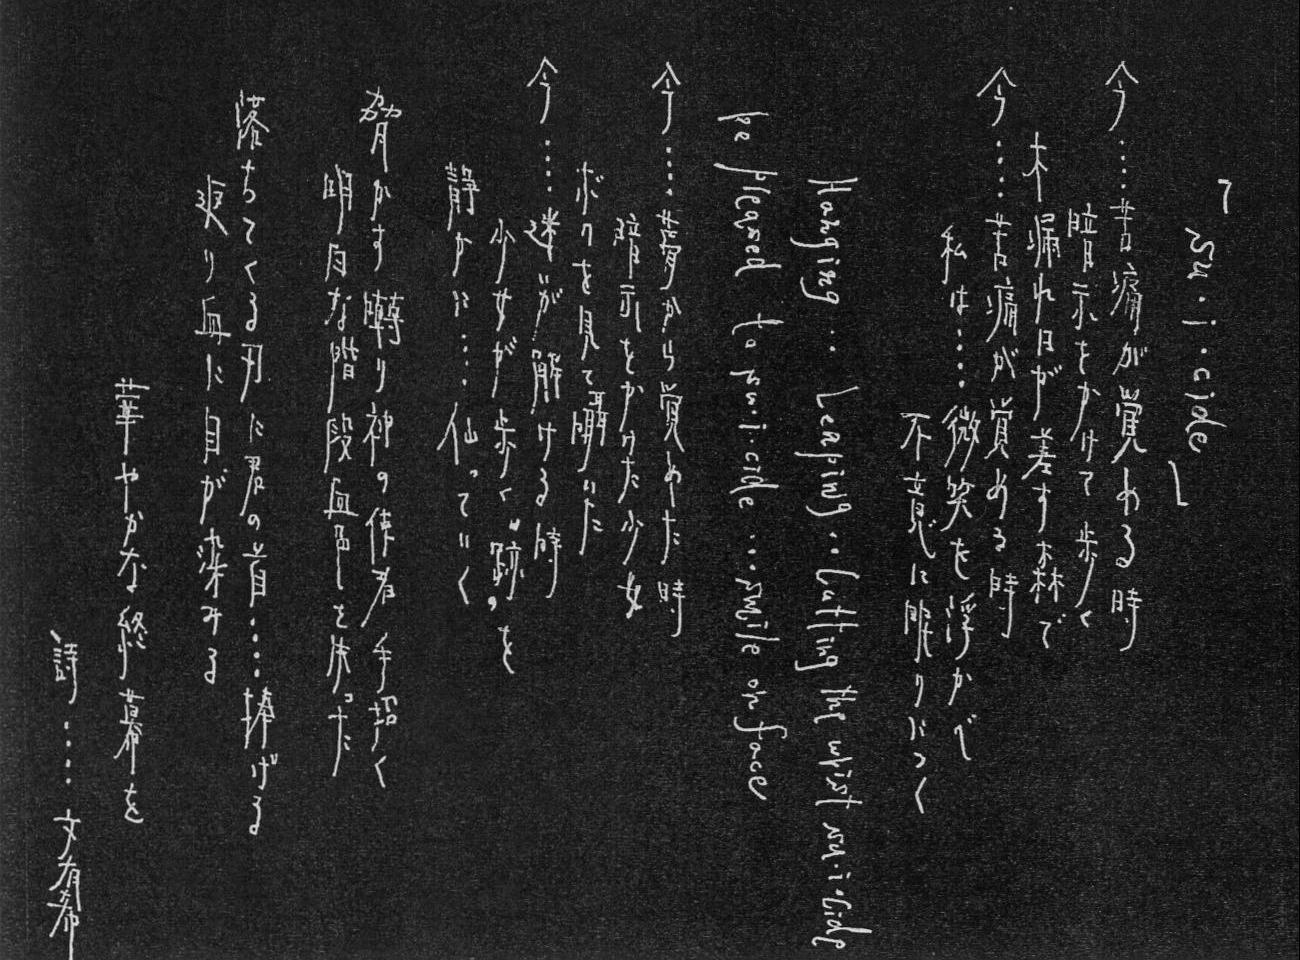 「su・i・cide」
今……苦痛が覚める時
暗示をかけて歩く
木漏れ日が差す森で
今……苦痛が覚める時
私は……微笑を浮かべ
不意に眠りにつく
Hanging... Leaping..Cutting the wrist su・i・cide
be pleased to su・i・cide ...smile on face
今……夢から覚めた時
暗示をかけた少女
ボクを見て囁いた
今……謎が解ける時
少女が歩く"跡"を
静かに……仏っていく
脅かす囀り神の使者手招く
明白な階段血色を抹った
落ちてくる刃に君の首……捧げる
返り血に目が染みる
華やかな終幕を
詩……文有希